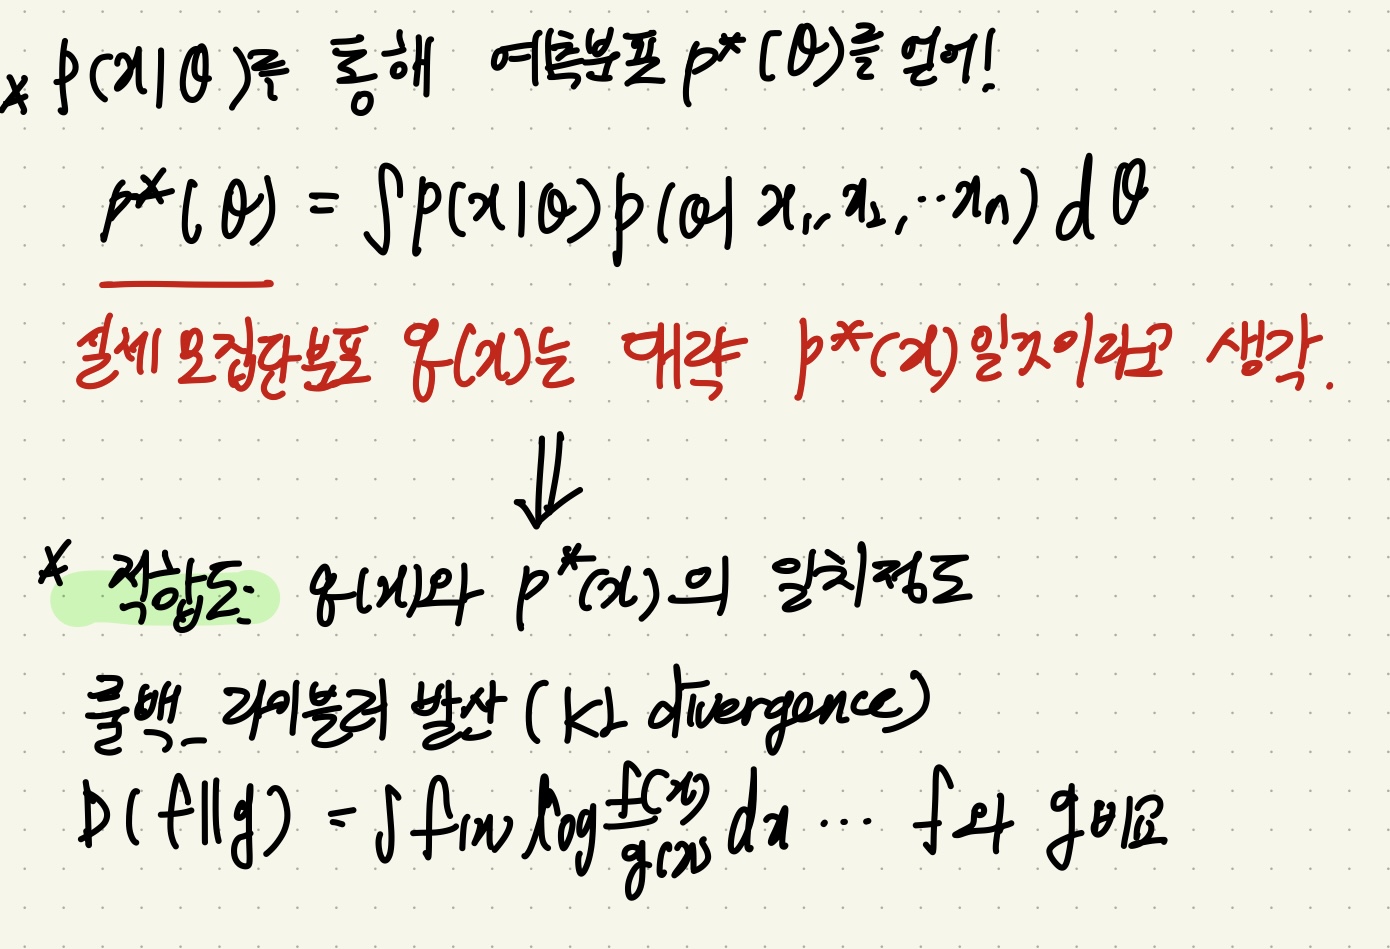 * p(x|θ)를 통해 예측분포 p*(θ)를 얻어!
p*(θ) = ∫p(x|θ)p(θ|x₁,x₂,‥xₙ)dθ
실제 모집단분포 q(x)는 대략 p*(x)일것이라고 생각.
⇓
* 적합도: q(x)와 p*(x)의 일치정도
쿨백_라이블러 발산 (KL divergence)
D(f||g) = ∫f(x) log f(x)/g(x) dx … f와 g 비교